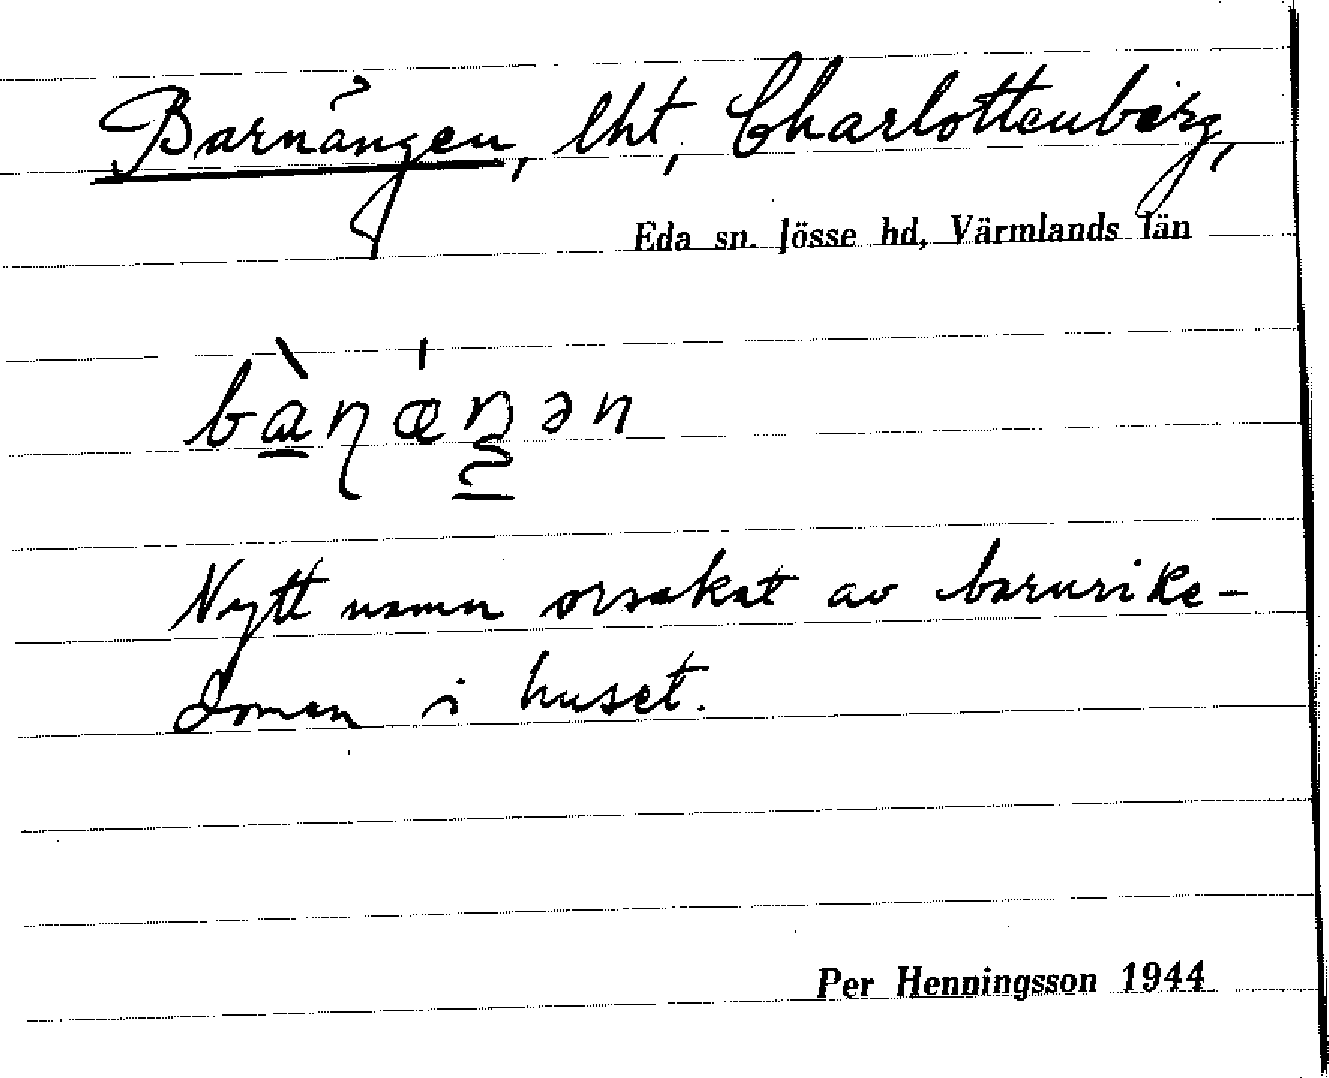 Barnängen, lht, Charlottenberg,
Eda sn. Jösse hd, Värmlands län
Nytt namn orsakat av barnrike-
domen i huset.
Per Henningsson 1944